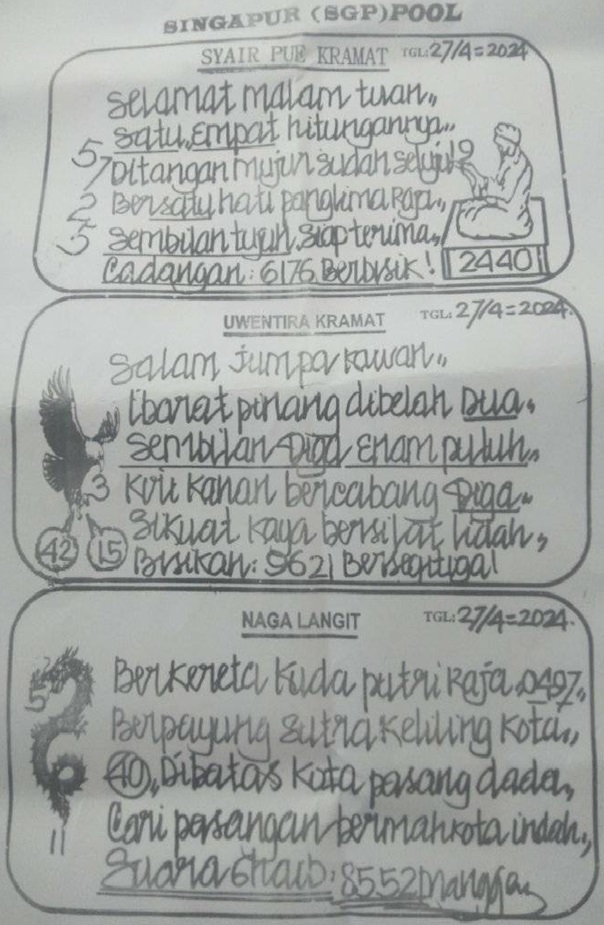 SINGAPUR (SGP) POOL
SYAIR PUE KRAMAT TGL: 27/4=2024
Selamat malam tuan,,
Satu, empat hitungannya,,
5 7 Ditangan mujur sudah setuju! 9
2 Bersatu hati panglima raja,,
5 Sembilan tujuh, siap terima,,
Cadangan: 6176 Berbisik! 2440
UWENTIRA KRAMAT TGL: 27/4=2024.
Salam jumpa kawan,,
Ibarat pinang dibelah Dua,
Sembilan Diga enam puluh,,
3 Kiri kanan bercabang Diga,,
Sikuat kaya bersilat lidah,
42 15 Bisikan: 9621 Bersegitiga!
NAGA LANGIT TGL: 27/4=2024.
5 Berkereta kuda putri Raja, 0497,,
Berpayung sutra keliling kota,,
40, Dibatas kota pasang dada,
11 Cari pasangan bermahkota indah,,
Suara Ghaib: 8552